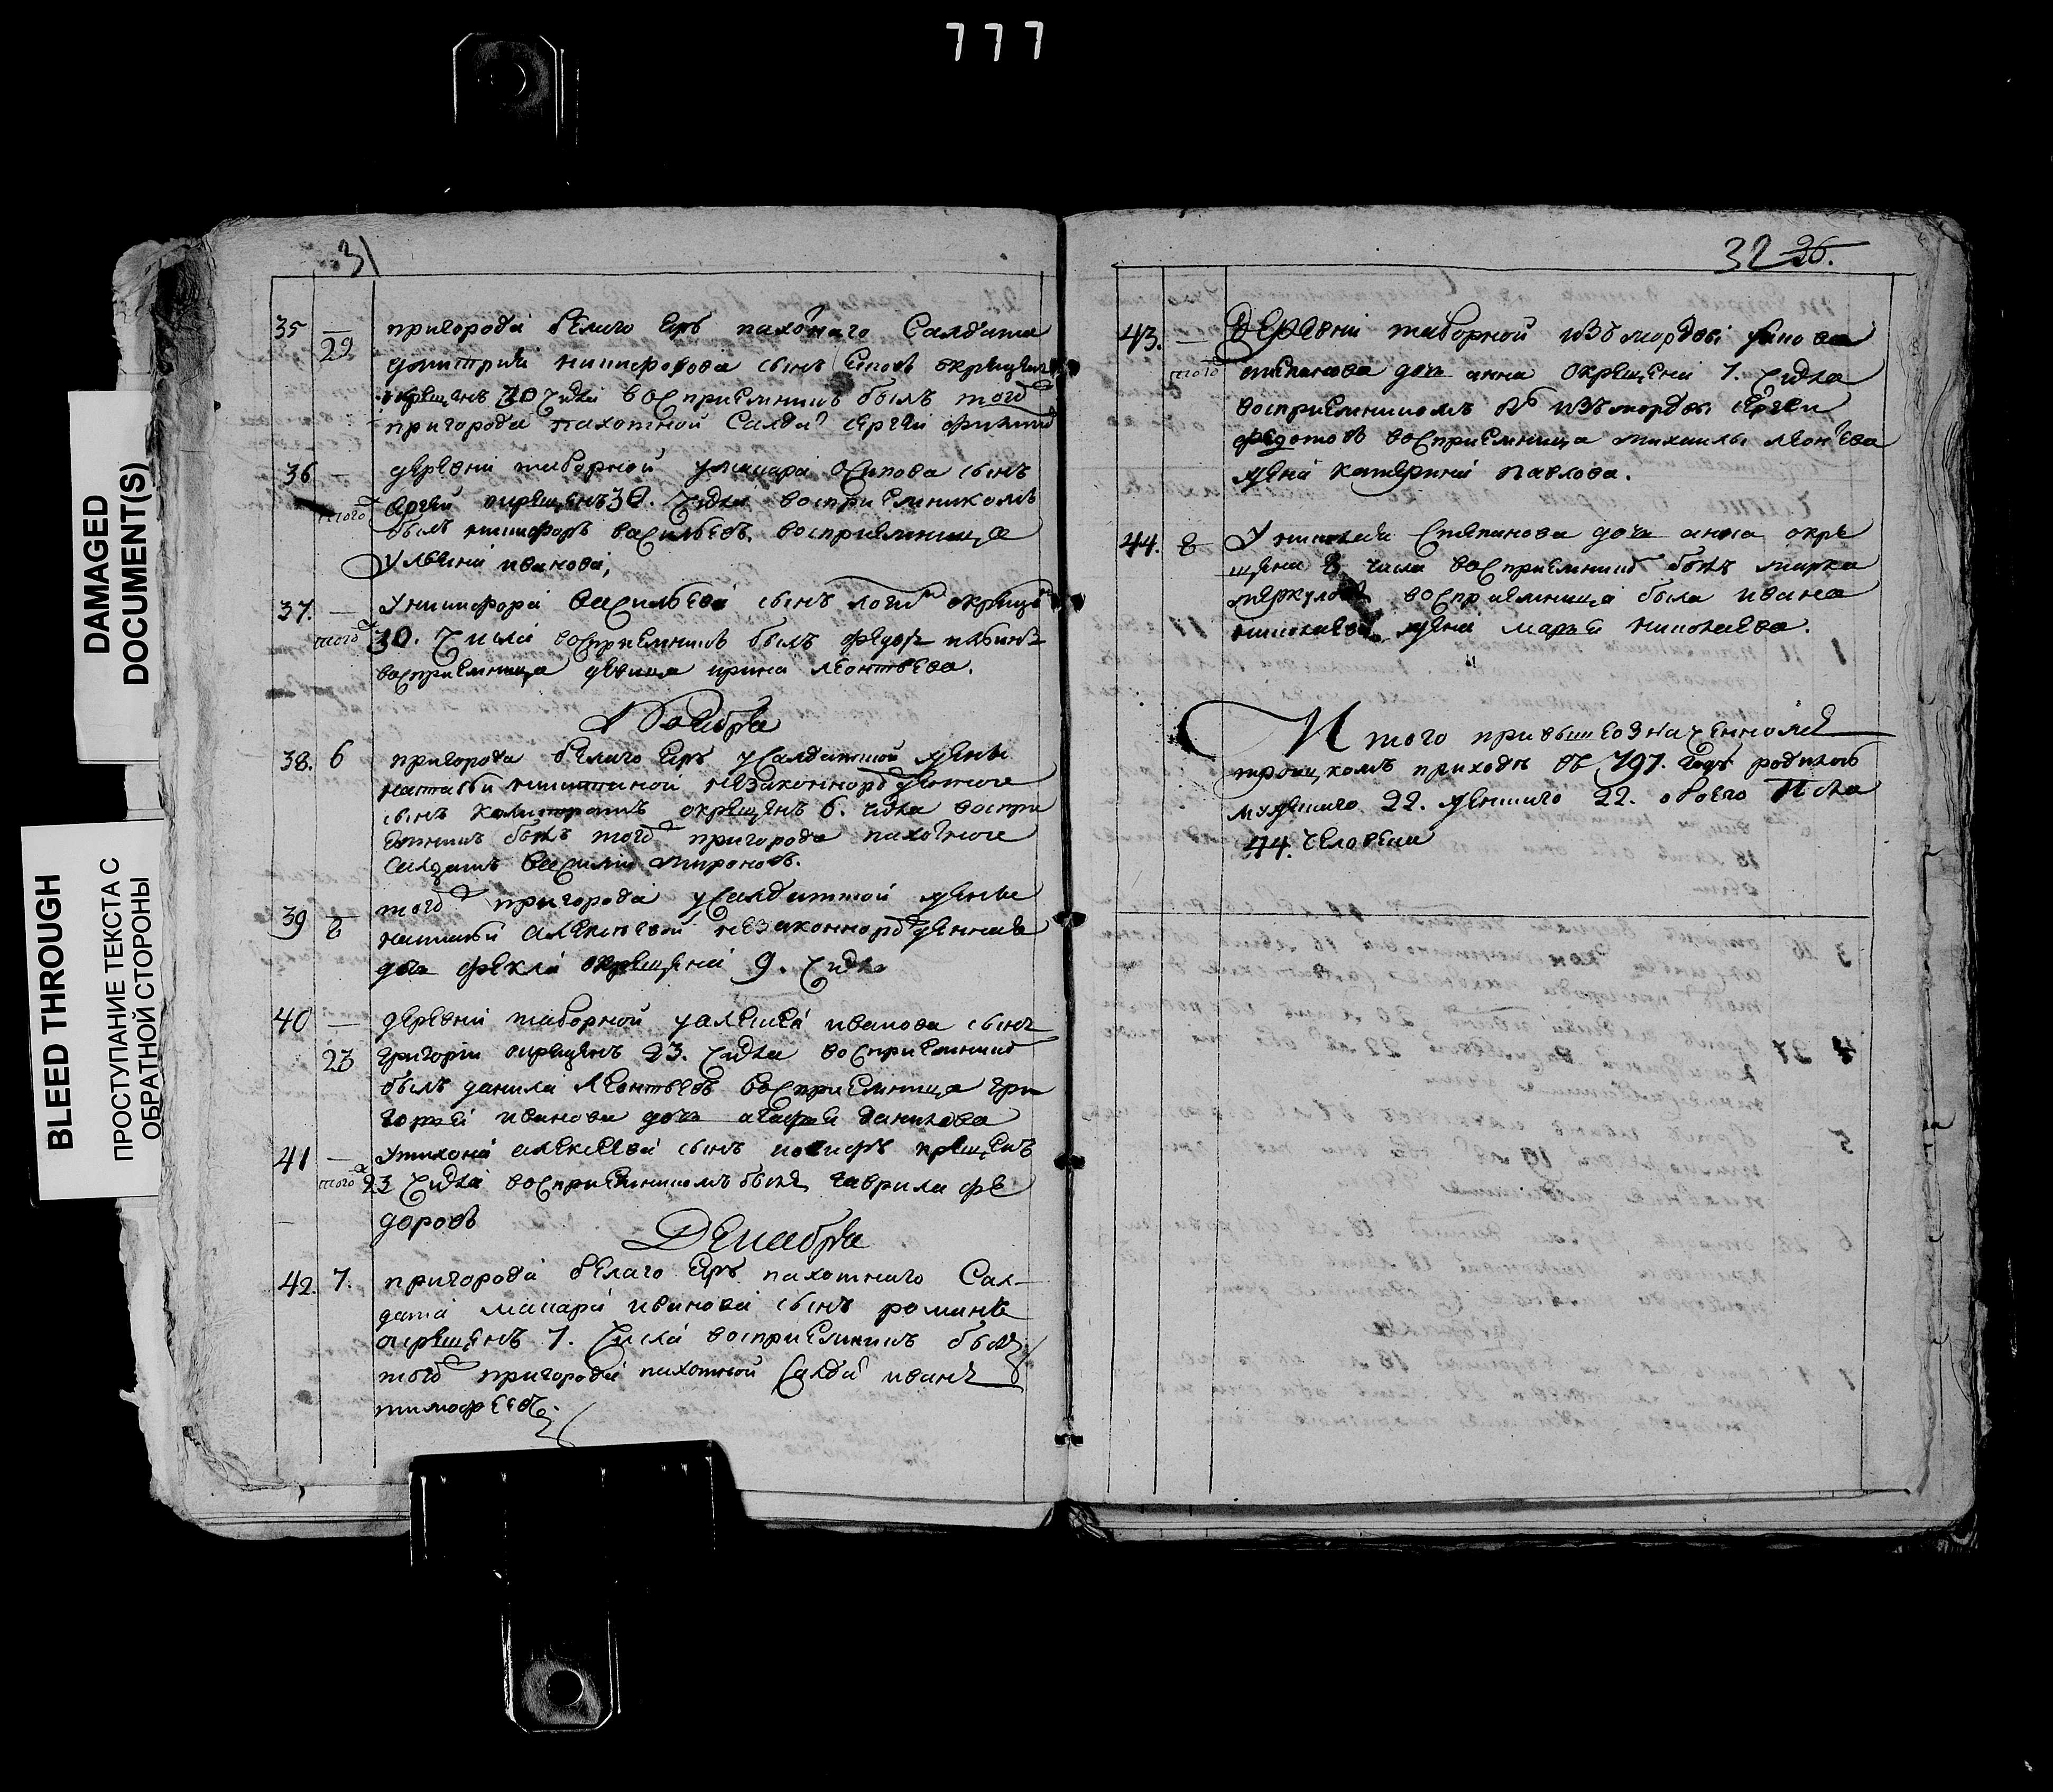 777
DAMAGED
DOCUMENT(S)
BLEED THROUGH
ПРОСТУПАНИЕ ТЕКСТА С
ОБРАТНОЙ СТОРОНЫ
31
35 29 пригорода белаго яръ пахотнаго салдата
дмитрия никифорова сынъ
30 числа восприемникъ былъ того
пригорода пахотной салдатъ сергей
36 того деревни таборной у макара осипова сынъ
сергей окрещенъ 30. числа восприемникомъ
былъ никифоръ васильевъ. восприемница
ульяна иванова,
37. того у никифора васильева сынъ окрещенъ
30. числа восприемникъ былъ федоръ
восприемница девица ирина леонтьева.
Ноября
38. 6 пригорода белаго яръ у салдатской жены
натальи никитиной незаконнорожденного
сынъ калистратъ окрещенъ 6. числа воспри
емникъ былъ того пригорода пахотного
салдатъ василий мироновъ.
39 8 того пригорода у салдатской жены
натальи алексеевой незаконнорожденная
дочь фекла окрещена 9. числа
40 23 деревни таборной у алексея иванова сынъ
григорий окрещенъ 23. числа восприемникъ
былъ данила леонтьевъ восприемница гри
горья иванова дочь данилова
41 того у тихона алексеева сынъ иосифъ крещенъ
23 числа восприемникомъ былъ гаврила фе
доровъ
Декабря
42. 7. пригорода белаго яръ пахотнаго сал
дата макара иванова сынъ романъ
окрещенъ 7. числа восприемникъ былъ
того пригорода пахотной салдатъ иванъ
тимофеевъ.
32 36.
43. того деревни таборной изъ мордвы
степанова дочь анна окрещена 7. числа
восприемникомъ изъ мордвы сергей
федотовъ восприемница михаилы леонтьева
жена катерина павлова.
44. 8 у николая степанова дочь анна окре
щена 8 числа восприемникъ былъ марка
меркулова восприемница была ивана
николаева жена марья николаева.
Итого при вышеозначенномъ
троицкомъ приходе въ 797. годе родилось
мужеского 22. женского 22. обоего пола
44. человека